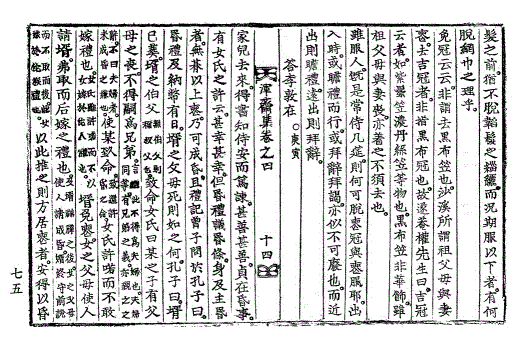 髮之前猶不脫韜髮之緇纚而況期服以下者有何
脫網巾之理乎
免冠云云非謂去黑布笠也沙溪所謂祖父母與妻
喪去吉冠者非指黑布冠也故遂菴權先生曰吉冠
云者如紫驄笠漆丹絲笠等物也黑布笠非華飾雖
祖父母與妻喪亦著之不須去也
雖服人旣是常侍几筵則何可脫喪冠與喪服耶出
入時或瞻禮而行或拜辭拜謁亦似不可廢也而近
出則瞻禮遠出則拜辭
答李敦在 庚寅
渾齋集卷之四 十四
家兒去來得書知侍安而篤課甚善甚善貞在昏事
有女氏之許云甚幸甚幸但昏禮議昏條身及主昏
者無朞以上喪乃可成昏且禮記曾子問於孔子曰
昏禮旣納幣有日壻之父母死則如之何孔子曰壻
已葬壻之伯父 致命女氏曰某之子有父
母之喪不得嗣爲兄弟
使某致命 女氏許諾而不敢
嫁禮也 壻免喪女之父母使人
請壻弗取而后嫁之禮也
以此推之則方居喪者安得以昏
七五